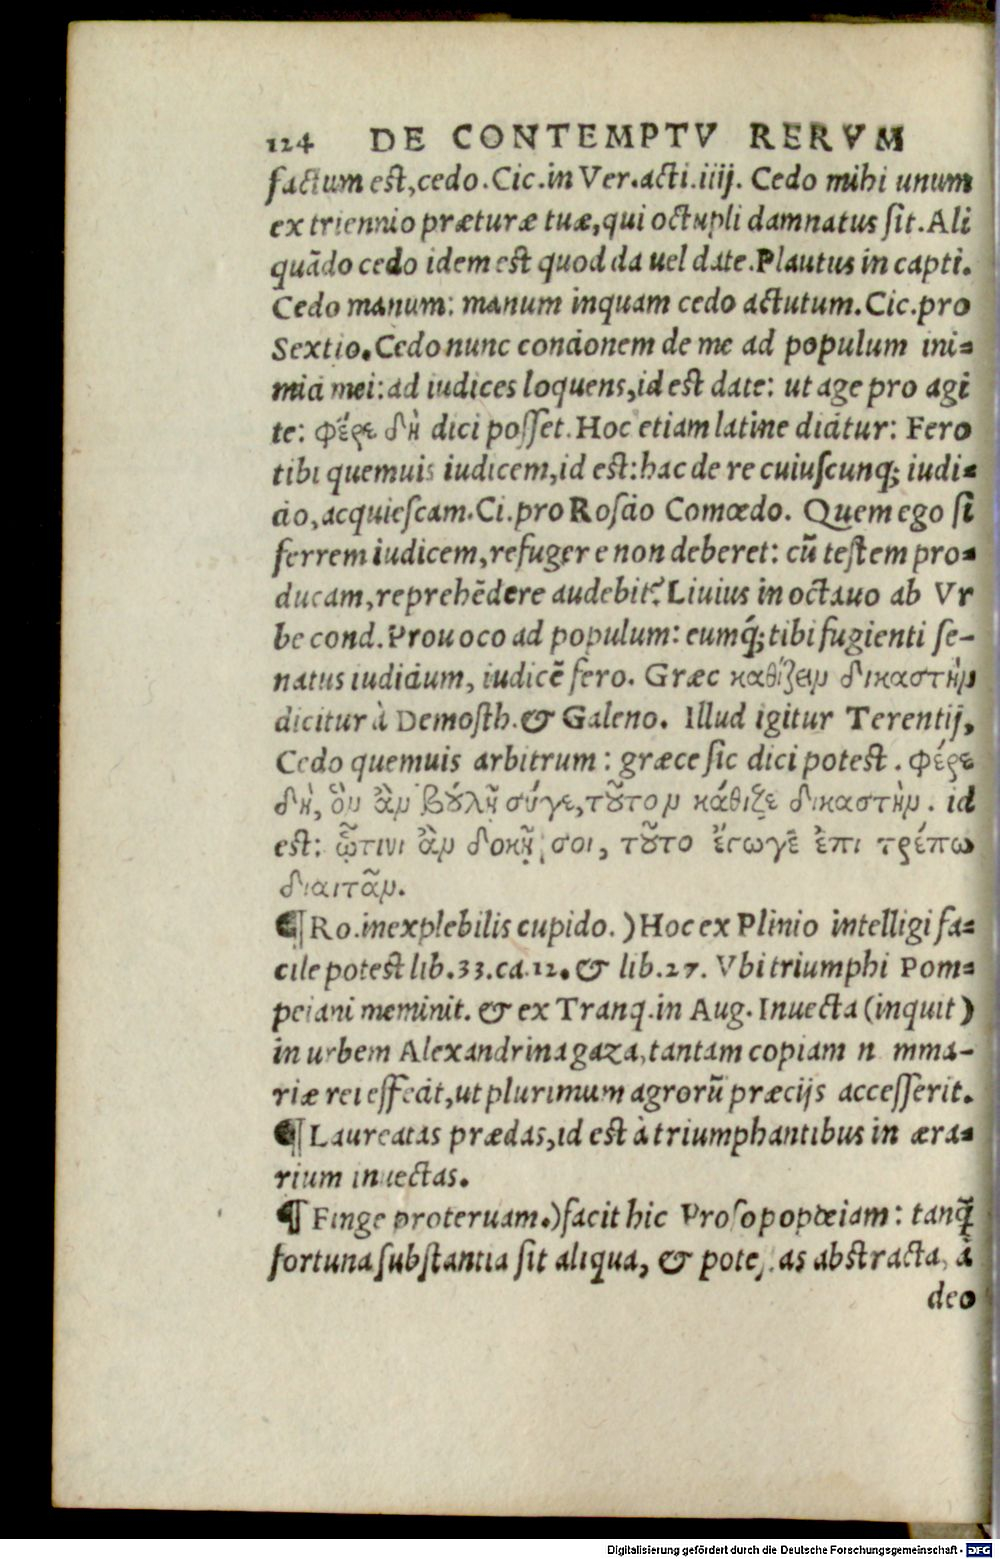 124 DE CONTEMPTV RERVM
factum est, cedo. Cic. in Ver. acti. iiij. Cedo mihi unum
ex triennio præturæ tuæ, qui octupli damnatus sit. Ali
quādo cedo idem est quod da uel date. Plautus in capti.
Cedo manum: manum inquam cedo actutum. Cic. pro
Sextio. Cedo nunc concionem de me ad populum ini-
mici mei: ad iudices loquens, id est date: ut age pro agi
te: φέρε δὴ dici posset. Hoc etiam latine dicitur: Fero
tibi quemuis iudicem, id est: hac de re cuiuscunq; iudi-
cio, acquiescam. Ci. pro Roscio Comœdo. Quem ego si
ferrem iudicem, refugere non deberet: cū testem pro-
ducam, reprehēdere audebit? Liuius in octauo ab Vr
be cond. Prouoco ad populum: eumq́; tibi fugienti se-
natus iudicium, iudicē fero. Græc καθίζειν δικαστὴν
dicitur à Demosth. & Galeno. Illud igitur Terentij,
Cedo quemuis arbitrum: græce sic dici potest. φέρε
δὴ, ὃν ἂν βούλῃ σύγε, τοῦτον κάθιζε δικαστὴν. id
est: ᾧτινι ἂν δοκῇ σοι, τοῦτο ἔγωγε ἐπιτρέπω
διαιτᾶν.
¶ Ro. inexplebilis cupido.) Hoc ex Plinio intelligi fa-
cile potest lib. 33. ca. 12. & lib. 27. Vbi triumphi Pom-
peiani meminit. & ex Tranq. in Aug. Inuecta (inquit)
in urbem Alexandrina gaza, tantam copiam n mma-
riæ rei effecit, ut plurimum agrorū præcijs accesserit.
¶ Laureatas prædas, id est à triumphantibus in æra-
rium inuectas.
¶ Finge proteruam.) facit hic Prosopopœiam: tanq̃
fortuna substantia sit aliqua, & potestas abstracta, à
deo
Digitalisierung gefördert durch die Deutsche Forschungsgemeinschaft - DFG